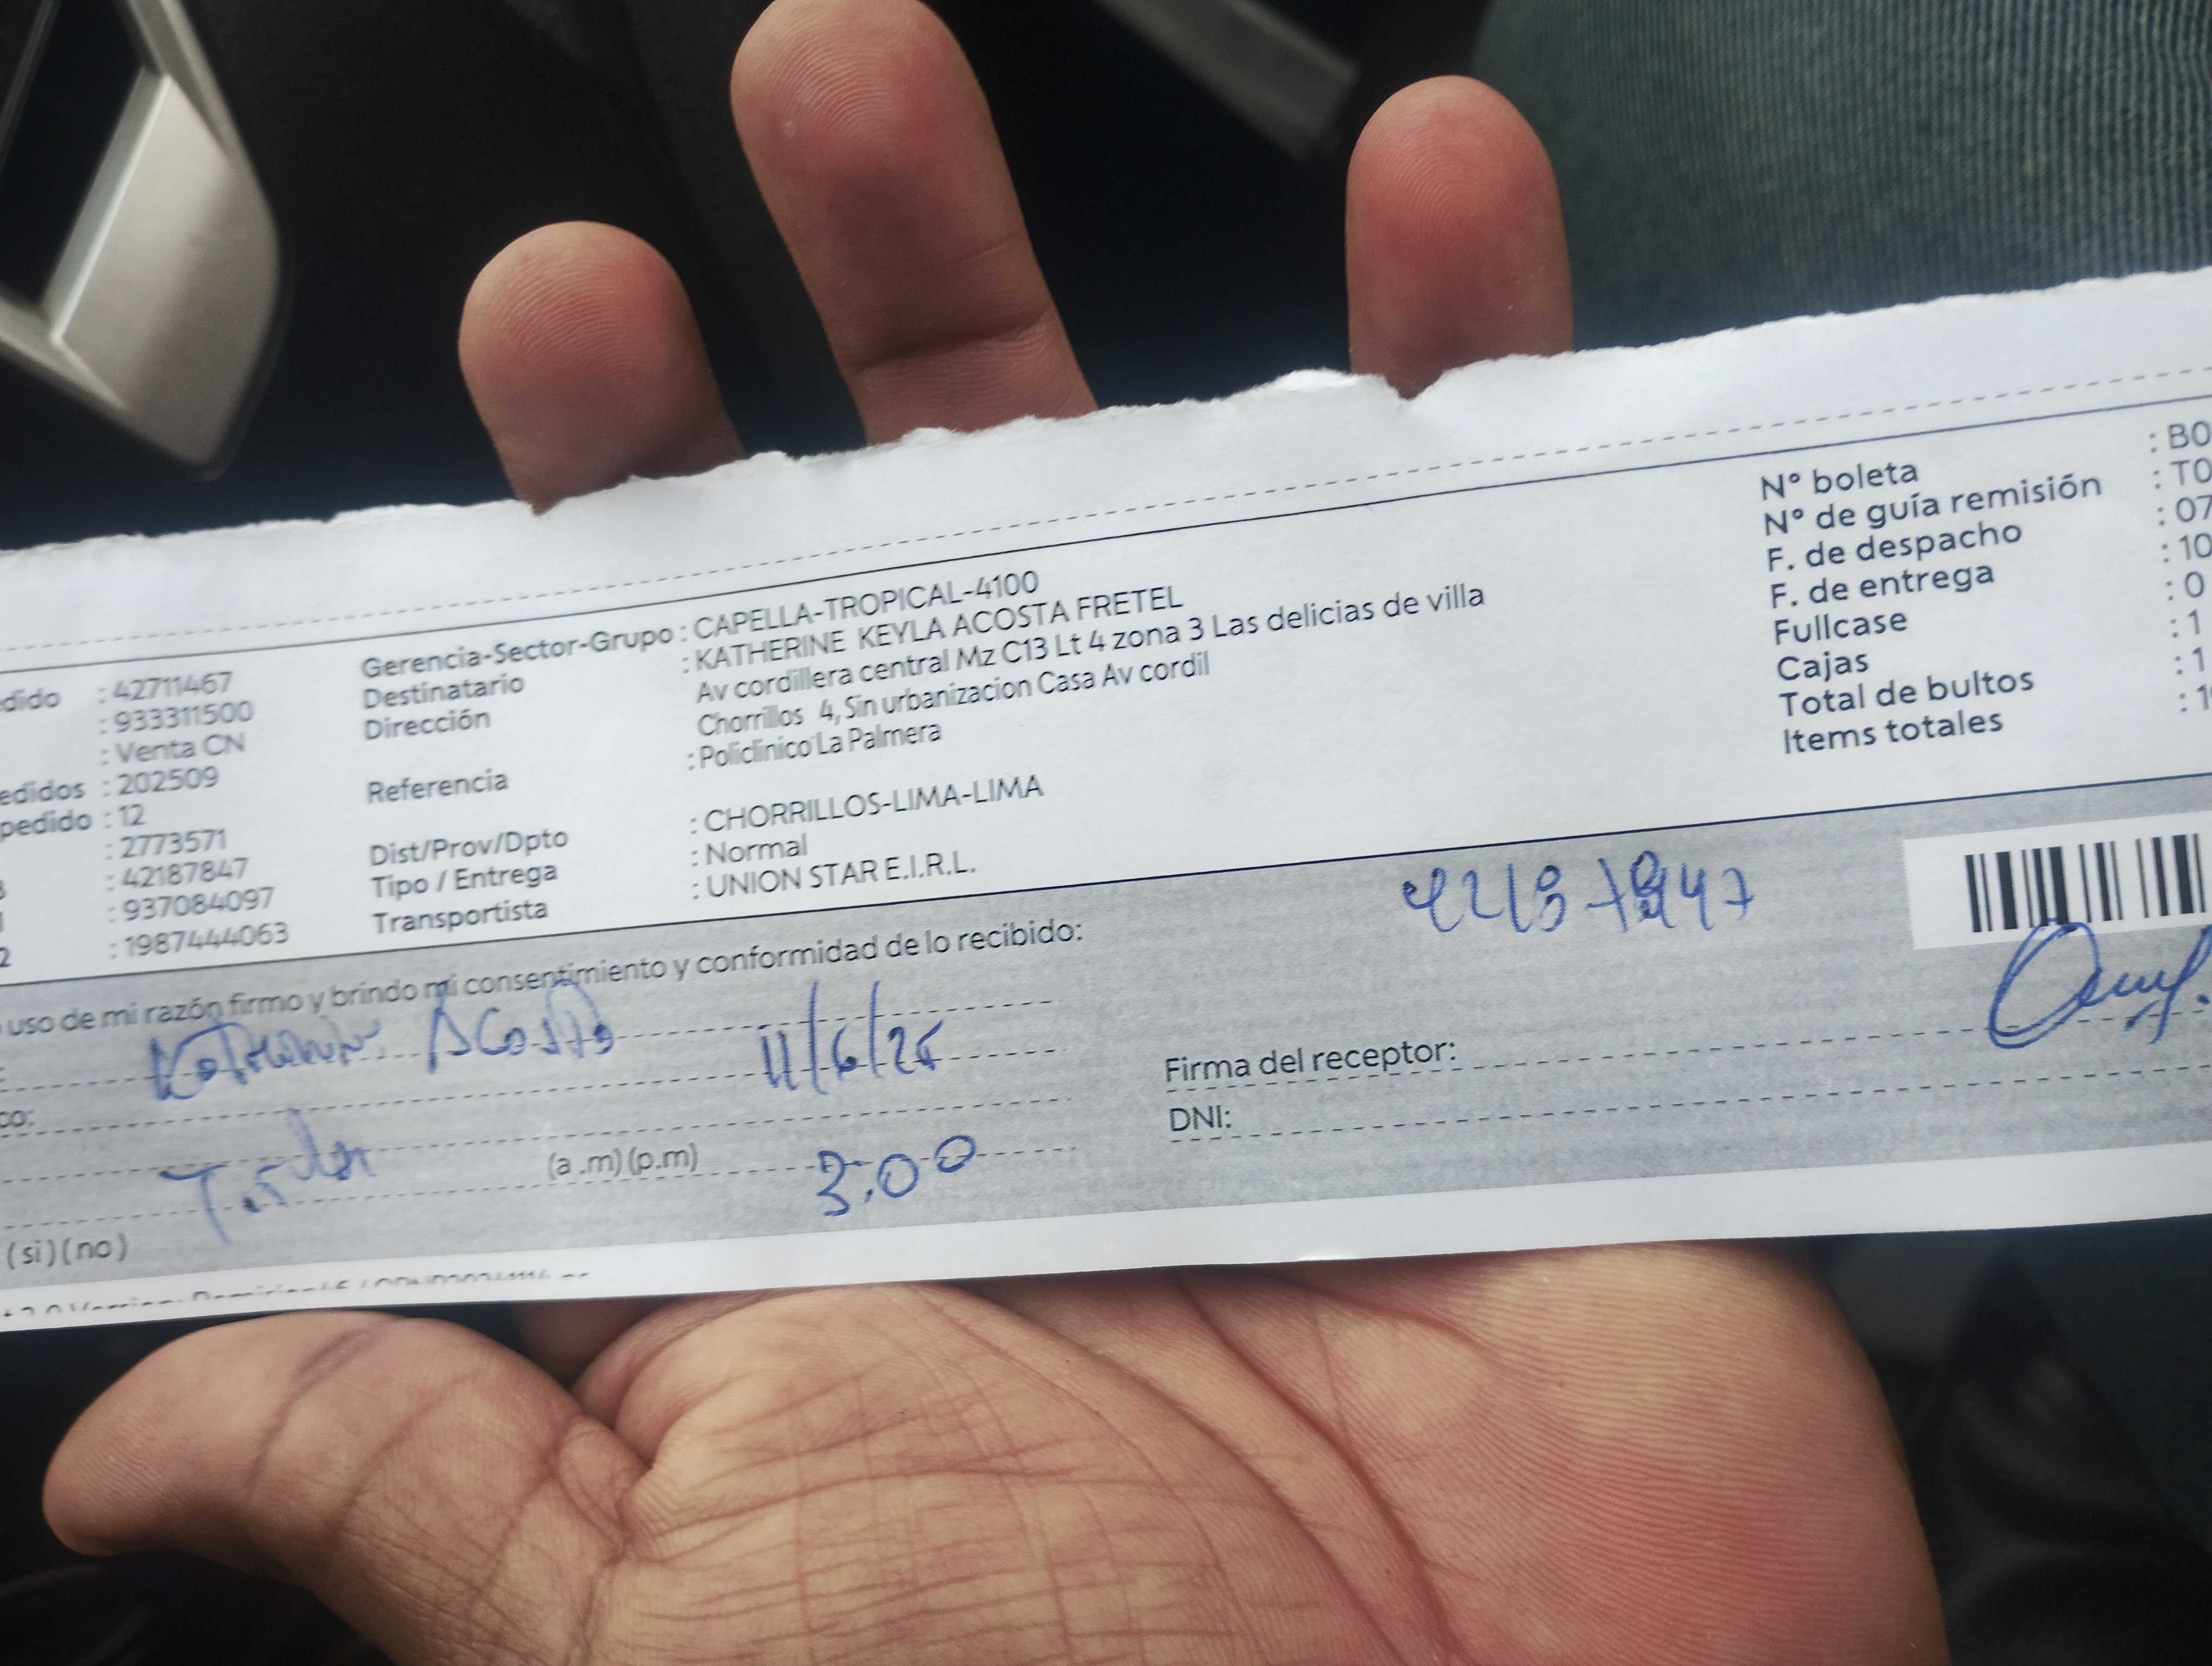 Gerencia-Sector-Grupo : CAPELLA-TROPICAL-4100
dido : 42711467 Destinatario : KATHERINE KEYLA ACOSTA FRETEL
: 933311500 Dirección Av cordillera central Mz C13 Lt 4 zona 3 Las delicias de villa
: Venta CN Chorrillos 4, Sin urbanizacion Casa Av cordil
edidos : 202509 Referencia : Policlínico La Palmera
pedido : 12
: 2773571 Dist/Prov/Dpto : CHORRILLOS-LIMA-LIMA
: 42187847 Tipo / Entrega : Normal
1 : 937084097 Transportista : UNION STAR E.I.R.L.
2 : 1987444063
N° boleta : B0
N° de guía remisión : T0
F. de despacho : 07
F. de entrega : 10
Fullcase : 0
Cajas : 1
Total de bultos : 1
Items totales : 1
uso de mi razón firmo y brindo mi consentimiento y conformidad de lo recibido:
Acosta 11/6/25
co:
(a .m) (p.m) 3:00
(si) (no)
Firma del receptor:
DNI: